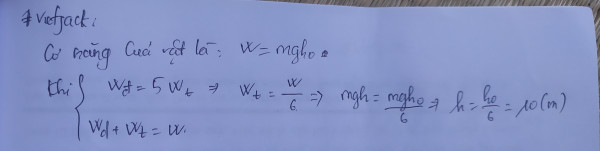 # Vietjack:
Cơ năng của vật là: W = mgh₀.
Khi { Wđ = 5 Wt ⇒ Wt = W/6 ⇒ mgh = mgh₀/6 ⇒ h = h₀/6 = 10 (m)
Wđ + Wt = W.